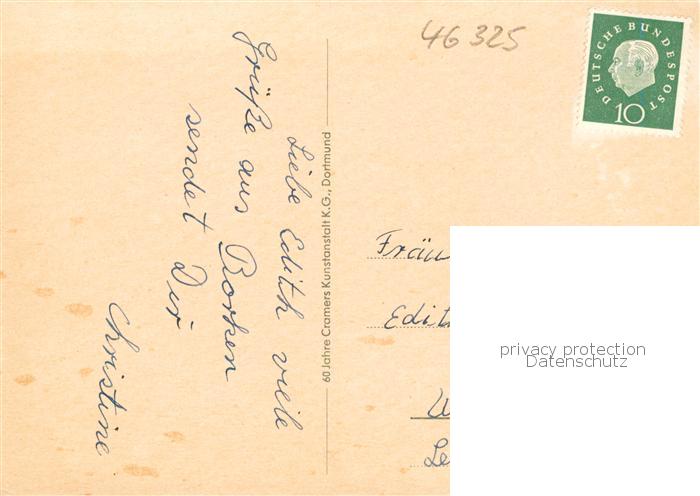 46 325
DEUTSCHE BUNDESPOST
10
Liebe Edith viele
Grüße aus Borken
sendet Dir
Christine
60 Jahre Cramers Kunstanstalt K.G., Dortmund
Fräu
Edit
privacy protection
Datenschutz